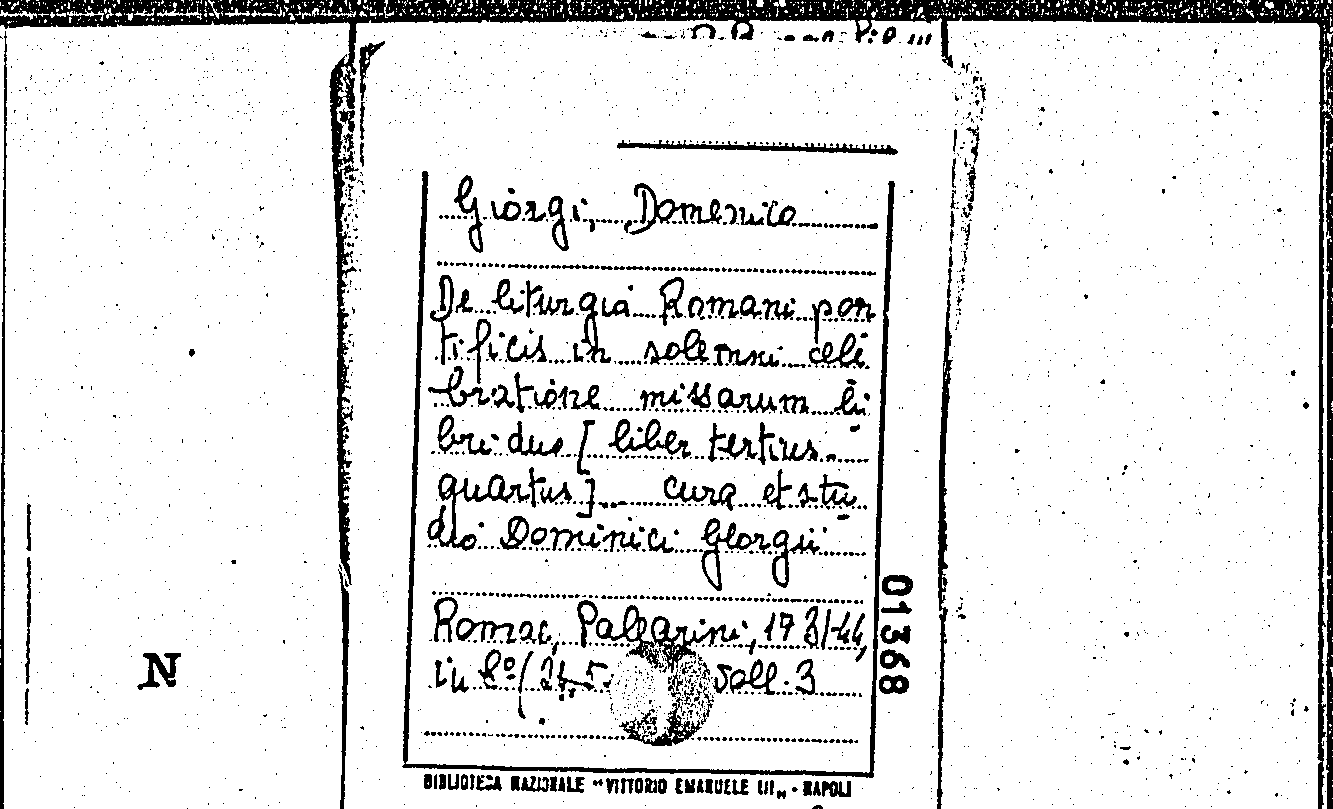 Giorgi, Domenico
De liturgia Romani pon
tificis in solemni cele
bratione missarum li
bri duo [ liber tertius -
quartus ]... cura et stu
dio Dominici Georgii
Romae, Pallearini, 173/-44,
in 8º ( voll. 3
BIBLIOTECA NAZIONALE "VITTORIO EMANUELE III" - NAPOLI
01368
N